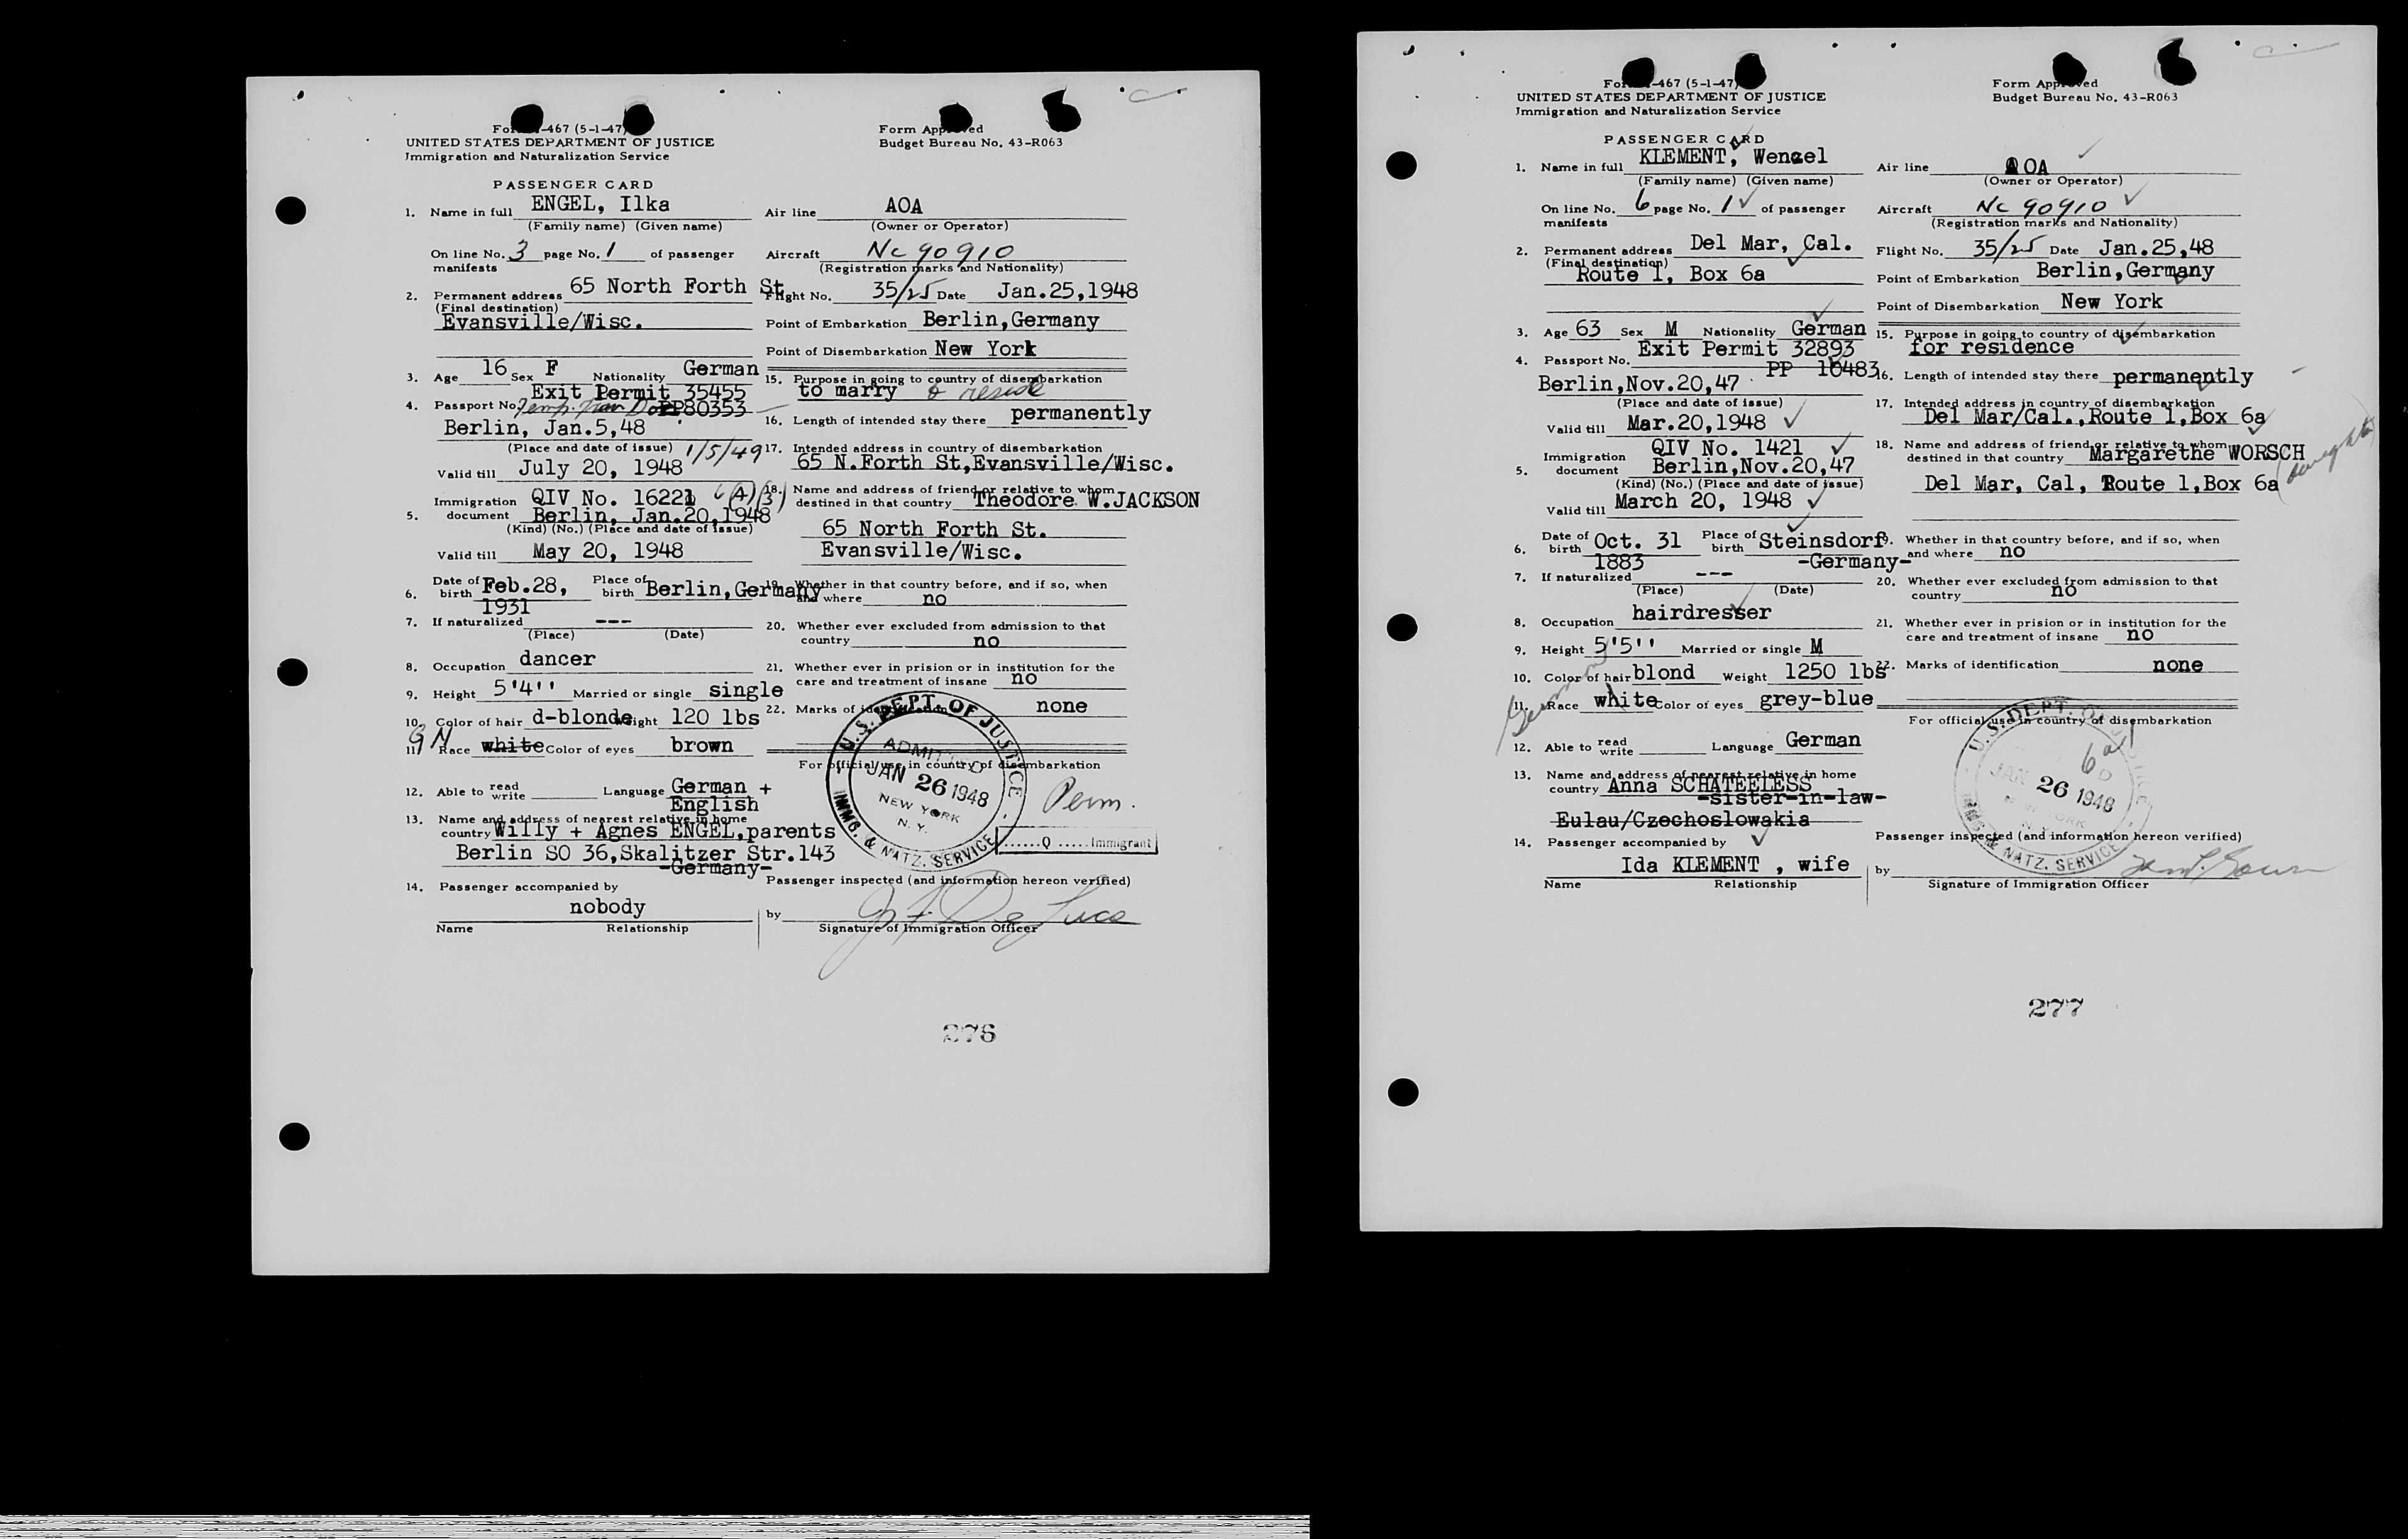 Form I-467 (5-1-47)
UNITED STATES DEPARTMENT OF JUSTICE
Immigration and Naturalization Service
Form Approved
Budget Bureau No. 43-R063
PASSENGER CARD
1. Name in full ENGEL, Ilka
(Family name) (Given name)
On line No. 3 page No. 1 of passenger
manifests
2. Permanent address 65 North Forth St
(Final destination)
Evansville/Wisc.
3. Age 16 Sex F Nationality German
Exit Permit 35455
4. Passport No. PP80353
Berlin, Jan.5,48
(Place and date of issue) 1/5/49
Valid till July 20, 1948
Immigration QIV No. 16221 (4)(3)
5. document Berlin, Jan.20,1948
(Kind) (No.) (Place and date of issue)
Valid till May 20, 1948
6. Date of birth Feb.28, 1931 Place of birth Berlin,Germany
7. If naturalized ---
(Place) (Date)
8. Occupation dancer
9. Height 5'4'' Married or single single
10. Color of hair d-blonde Weight 120 lbs
GN
11. Race white Color of eyes brown
12. Able to read write Language German +
English
13. Name and address of nearest relative in home
country Willy + Agnes ENGEL,parents
Berlin SO 36,Skalitzer Str.143
-Germany-
14. Passenger accompanied by
nobody
Name Relationship
Air line AOA
(Owner or Operator)
Aircraft Nc 90910
(Registration marks and Nationality)
Flight No. 35/25 Date Jan.25,1948
Point of Embarkation Berlin,Germany
Point of Disembarkation New York
15. Purpose in going to country of disembarkation
to marry & reside
16. Length of intended stay there permanently
17. Intended address in country of disembarkation
65 N.Forth St,Evansville/Wisc.
18. Name and address of friend or relative to whom
destined in that country Theodore W.JACKSON
65 North Forth St.
Evansville/Wisc.
19. Whether in that country before, and if so, when
and where no
20. Whether ever excluded from admission to that
country no
21. Whether ever in prision or in institution for the
care and treatment of insane no
22. Marks of identification none
For official use in country of disembarkation
U.S. DEPT. OF JUSTICE
ADMITTED
JAN 26 1948
NEW YORK
N.Y.
IMMG. & NATZ. SERVICE
Perm.
......Q ..... Immigrant
Passenger inspected (and information hereon verified)
by De Luca
Signature of Immigration Officer
276
Form I-467 (5-1-47)
UNITED STATES DEPARTMENT OF JUSTICE
Immigration and Naturalization Service
Form Approved
Budget Bureau No. 43-R063
PASSENGER CARD
1. Name in full KLEMENT, Wenzel
(Family name) (Given name)
On line No. 6 page No. 1 of passenger
manifests
2. Permanent address Del Mar, Cal.
(Final destination)
Route 1, Box 6a
3. Age 63 Sex M Nationality German
Exit Permit 32893
4. Passport No. PP 16483
Berlin,Nov.20,47
(Place and date of issue)
Valid till Mar.20,1948
Immigration QIV No. 1421
5. document Berlin,Nov.20,47
(Kind) (No.) (Place and date of issue)
Valid till March 20, 1948
6. Date of birth Oct. 31 1883 Place of birth Steinsdorf
-Germany-
7. If naturalized ---
(Place) (Date)
8. Occupation hairdresser
9. Height 5'5'' Married or single M
10. Color of hair blond Weight 1250 lbs
German
11. Race white Color of eyes grey-blue
12. Able to read write Language German
13. Name and address of nearest relative in home
country Anna SCHATEELESS
-sister-in-law-
Eulau/Czechoslowakia
14. Passenger accompanied by
Ida KLEMENT , wife
Name Relationship
Air line AOA
(Owner or Operator)
Aircraft Nc 90910
(Registration marks and Nationality)
Flight No. 35/25 Date Jan.25,48
Point of Embarkation Berlin,Germany
Point of Disembarkation New York
15. Purpose in going to country of disembarkation
for residence
16. Length of intended stay there permanently
17. Intended address in country of disembarkation
Del Mar/Cal.,Route 1,Box 6a
18. Name and address of friend or relative to whom
destined in that country Margarethe WORSCH
Del Mar, Cal, Route 1,Box 6a (daughter)
19. Whether in that country before, and if so, when
and where no
20. Whether ever excluded from admission to that
country no
21. Whether ever in prision or in institution for the
care and treatment of insane no
22. Marks of identification none
For official use in country of disembarkation
U.S. DEPT. OF JUSTICE
JAN 26 1948
NEW YORK
N.Y.
IMMG. & NATZ. SERVICE
6a1
Passenger inspected (and information hereon verified)
by
Signature of Immigration Officer
277